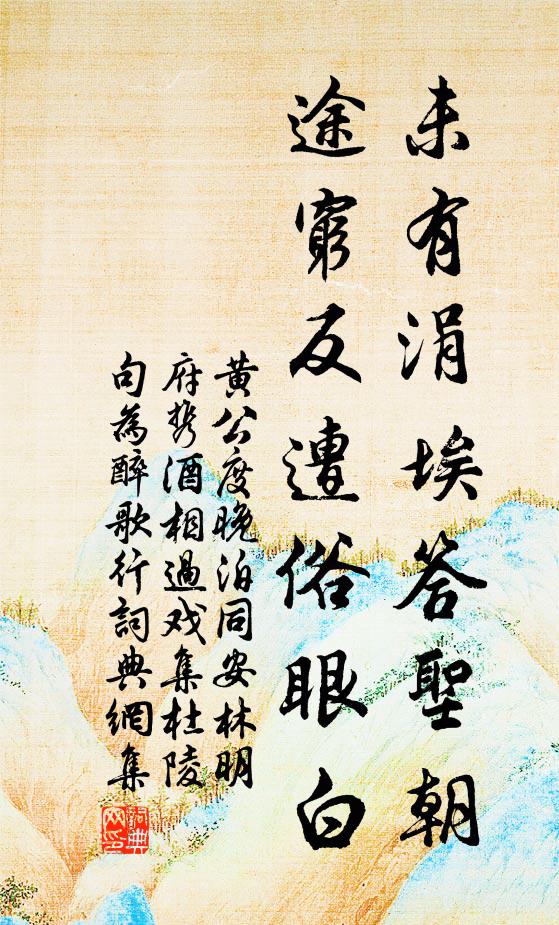 未有涓埃答聖朝
途窮反遭俗眼白
黃公度晚泊同安林明
府携酒相過戏集杜陵
句為醉歌行詞典網集
詞典
网印